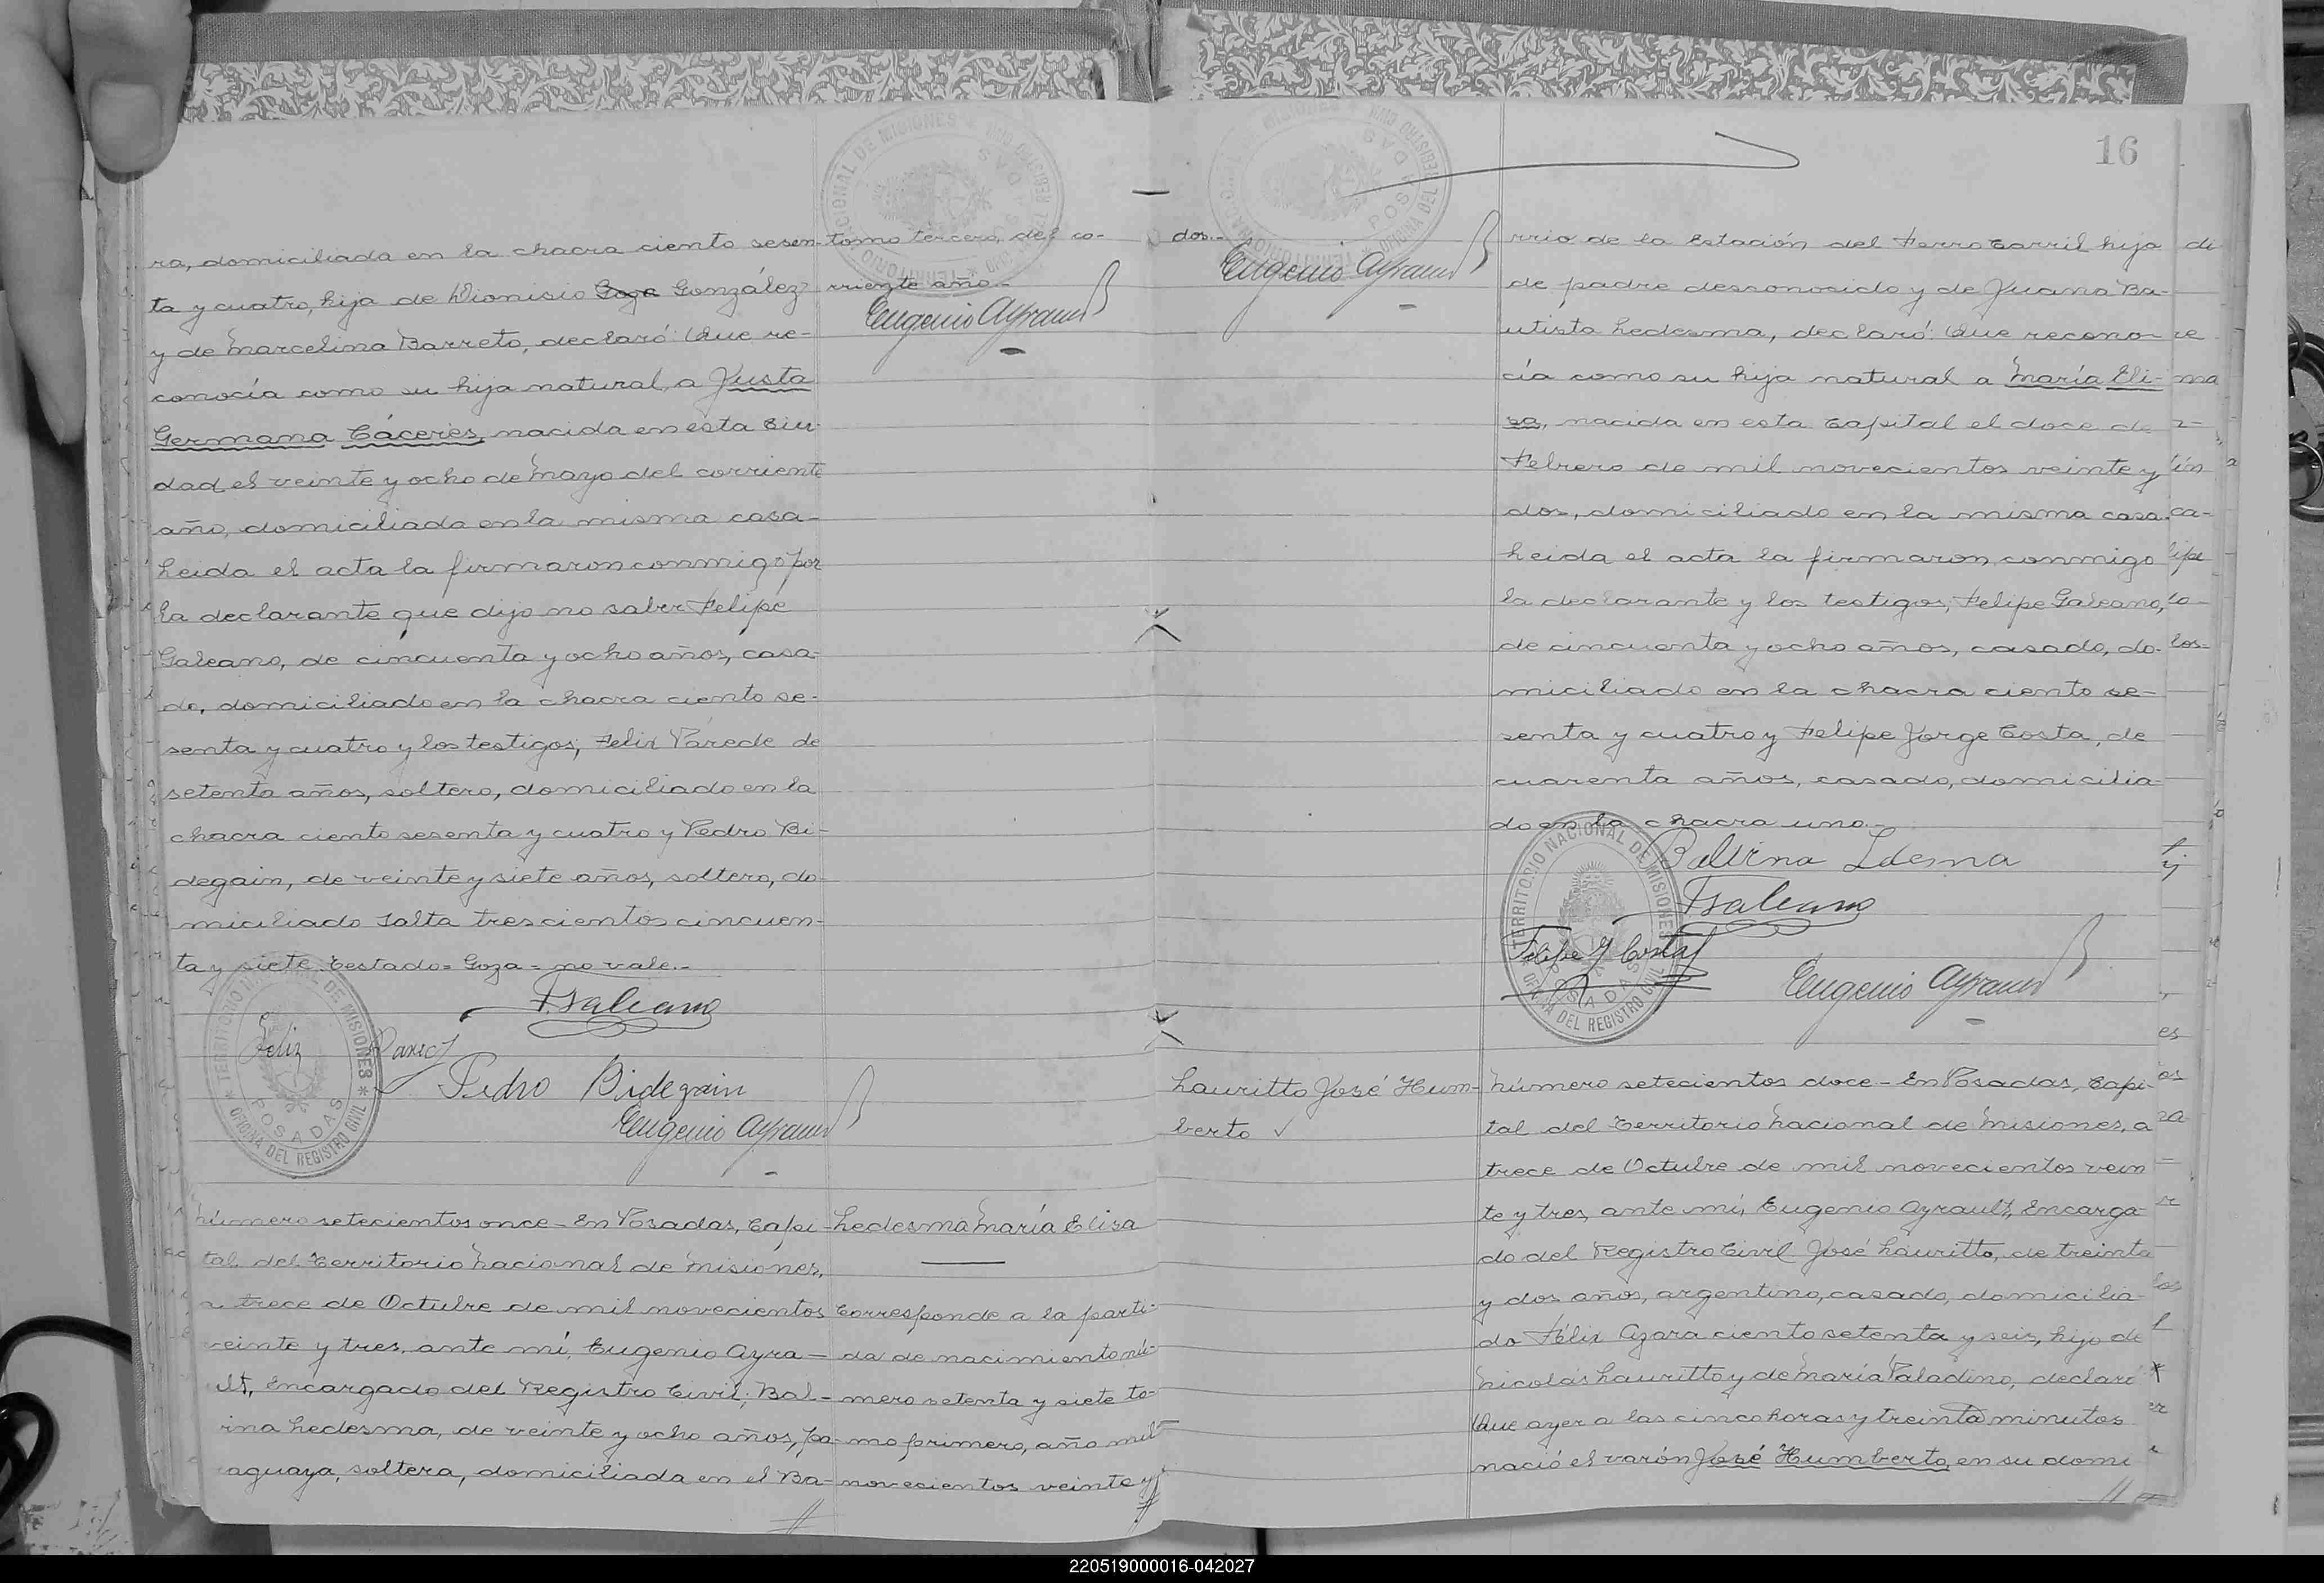 ra, domiciliada en la chacra ciento sesen-
ta y cuatro, hija de Dionisio Goza González
y de Marcelina Barreto, declaró: Que re-
conocía como su hija natural, a Justa
Germana Cáceres, nacida en esta Ciu-
dad el veinte y ocho de Mayo del corriente
año, domiciliada en la misma casa-
Leida el acta la firmaron conmigo por
la declarante que dijo no saber Felipe
Galeano, de cincuenta y ocho años, casa-
do, domiciliado en la chacra ciento se-
senta y cuatro y los testigos, Felix Parede de
setenta años, soltero, domiciliado en la
chacra ciento sesenta y cuatro y Pedro Bi-
degain, de veinte y siete años, soltero, do-
miciliado Salta trescientos cincuen-
ta y siete. Testado= Goza= no vale.-
F. Galeano
Feliz
Pedro Bidegain
Eugenio Ayrault
TERRITORIO NACIONAL DE MISIONES
POSADAS
OFICINA DEL REGISTRO CIVIL
tomo tercero, del co-
rriente año.-
Eugenio Ayrault
Número setecientos once- En Posadas, Capi-
tal del Territorio Nacional de Misiones,
a trece de Octubre de mil novecientos
veinte y tres, ante mí, Eugenio Ayra-
ult, Encargado del Registro Civil; Bal-
vina Ledesma, de veinte y ocho años, pa-
raguaya, soltera, domiciliada en el Ba-
Ledesma María Elisa
Corresponde a la parti-
da de nacimiento nú-
mero setenta y siete to-
mo primero, año mil
novecientos veinte y
dos.-
Eugenio Ayrault
16
rrio de la Estación del Ferro Carril hija
de padre desconocido y de Juana Ba-
utista Ledesma, declaró: Que recono-
cía como su hija natural a María Eli-
sa, nacida en esta Capital el doce de
Febrero de mil novecientos veinte y
dos, domiciliado en la misma casa.
Leida el acta la firmaron conmigo
la declarante y los testigos, Felipe Galeano,
de cincuenta y ocho años, casado, do-
miciliado en la chacra ciento se-
senta y cuatro y Felipe Jorge Costa, de
cuarenta años, casado, domicilia-
do en la chacra uno.-
Balvina Ldesma
F. Galeano
Felipe J Costa
Eugenio Ayrault
TERRITORIO NACIONAL DE MISIONES
POSADAS
OFICINA DEL REGISTRO CIVIL
Lauritto José Hum-
berto
Número setecientos doce- En Posadas, Capi-
tal del Territorio Nacional de Misiones, a
trece de Octubre de mil novecientos vein
te y tres, ante mí, Eugenio Ayrault, Encarga-
do del Registro Civil José Lauritto, de treinta
y dos años, argentino, casado, domicilia-
do Félix Azara ciento setenta y seis, hijo de
Nicolás Lauritto y de María Paladino, declaró
Que ayer a las cinco horas y treinta minutos
nació el varón José Humberto, en su domi
220519000016-042027